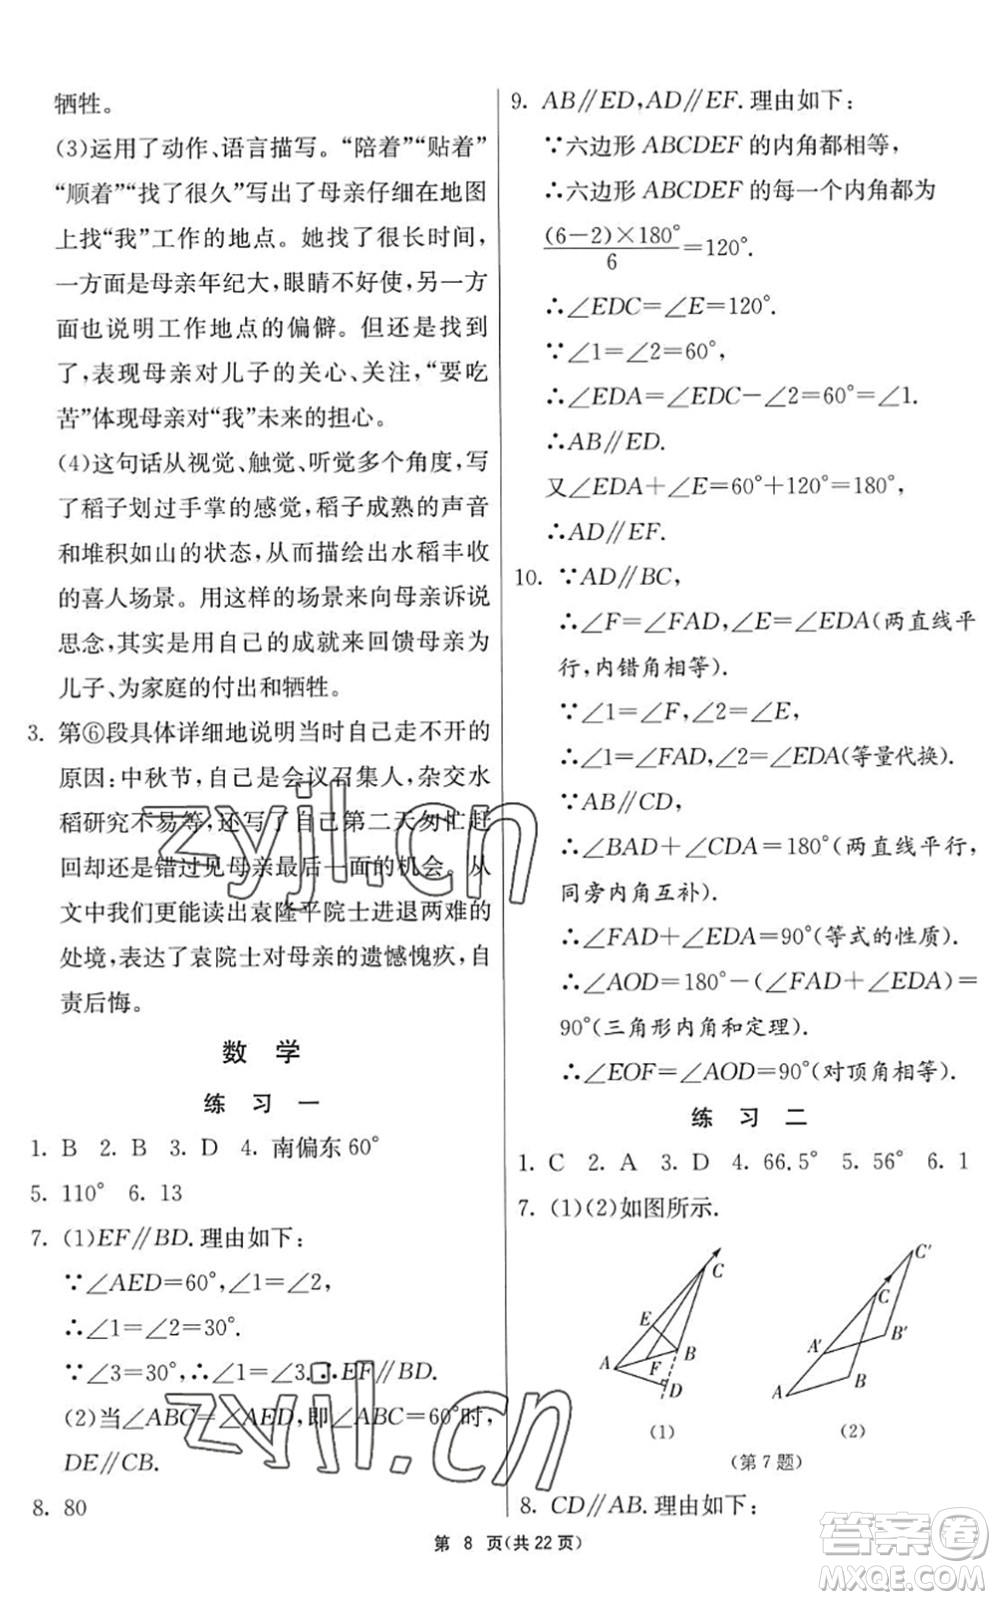 牺牲。
(3)运用了动作、语言描写。“陪着”“贴着”
“顺着”“找了很久”写出了母亲仔细在地图
上找“我”工作的地点。她找了很长时间,
一方面是母亲年纪大,眼睛不好使,另一方
面也说明工作地点的偏僻。但还是找到
了,表现母亲对儿子的关心、关注,“要吃
苦”体现母亲对“我”未来的担心。
(4)这句话从视觉、触觉、听觉多个角度,写
了稻子划过手掌的感觉,稻子成熟的声音
和堆积如山的状态,从而描绘出水稻丰收
的喜人场景。用这样的场景来向母亲诉说
思念,其实是用自己的成就来回馈母亲为
儿子、为家庭的付出和牺牲。
3. 第⑥段具体详细地说明当时自己走不开的
原因:中秋节,自己是会议召集人,杂交水
稻研究不易等,还写了自己第二天匆忙赶
回却还是错过见母亲最后一面的机会。从
文中我们更能读出袁隆平院士进退两难的
处境,表达了袁院士对母亲的遗憾愧疚,自
责后悔。
数 学
练 习 一
1. B 2. B 3. D 4. 南偏东60°
5. 110° 6. 13
7. (1)EF∥BD.理由如下:
∵∠AED=60°,∠1=∠2,
∴∠1=∠2=30°.
∵∠3=30°,∴∠1=∠3.∴EF∥BD.
(2)当∠ABC=∠AED,即∠ABC=60°时,
DE∥CB.
8. 80
9. AB∥ED,AD∥EF.理由如下:
∵六边形ABCDEF的内角都相等,
∴六边形ABCDEF的每一个内角都为
(6-2)×180°/6=120°.
∴∠EDC=∠E=120°.
∵∠1=∠2=60°,
∴∠EDA=∠EDC-∠2=60°=∠1.
∴AB∥ED.
又∠EDA+∠E=60°+120°=180°,
∴AD∥EF.
10. ∵AD∥BC,
∴∠F=∠FAD,∠E=∠EDA(两直线平
行,内错角相等).
∵∠1=∠F,∠2=∠E,
∴∠1=∠FAD,∠2=∠EDA(等量代换).
∵AB∥CD,
∴∠BAD+∠CDA=180°(两直线平行,
同旁内角互补).
∴∠FAD+∠EDA=90°(等式的性质).
∴∠AOD=180°-(∠FAD+∠EDA)=
90°(三角形内角和定理).
∴∠EOF=∠AOD=90°(对顶角相等).
练 习 二
1. C 2. A 3. D 4. 66.5° 5. 56° 6. 1
7. (1)(2)如图所示.
C
E
B
A
F
D
(1)
C′
C
A′
B′
B
A
(2)
(第7题)
8. CD∥AB.理由如下:
第 8 页(共22页)
zyjl.cn
zyjl.cn
答案卷
MXQE.COM